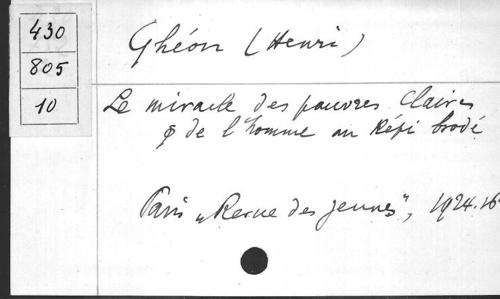 430
805
10
Ghéon (Henri)
Le miracle des pauvres Claires
& de l'homme au Képi brodé
Paris „Revue des jeunes", 1924. 16°